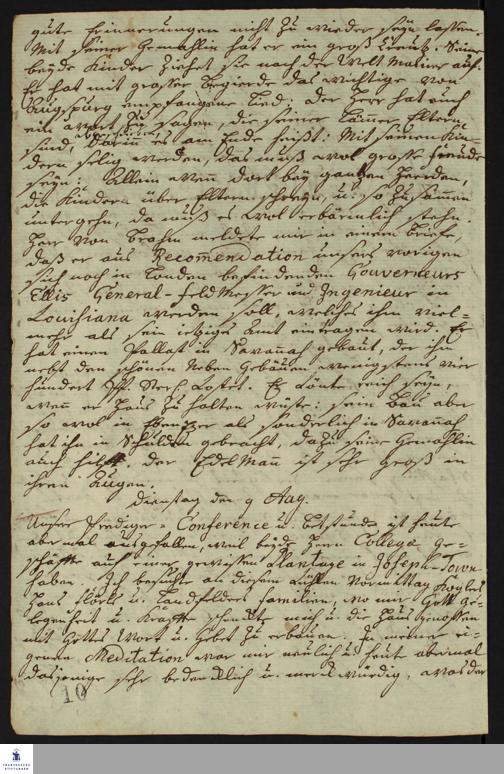 gute Erinnerungen nicht zu wieder seyn lassen.
Mit seiner Gemahlin hat er ein groß Creutz. Seine
beyde Kinder ziehet sie nach der Welt Manier auf.
Er hat mit grosser Begierde das wichtige von
Augspurg empfangene Lied: Der Herr hat auch
ein Wort zu sagen, die seiner Lämmer Eltern
sind, darin es am Ende heißt: Mit seinen Kin
dern selig werden, das muß wol grosse Freude
seyn: Allein wenn dort bey gantzen Heerden,
die Kinder über Eltern schreyn, u. so zusammen
untergehn, da muß es wol erbärmlich stehn.
Herr von Brahm meldete mir in einem Briefe,
daß er aus Recommendation unsers vorigen
sich noch in London befindenden Gouverneurs
Ellis General-Feld Messer und Ingenieur in
Louisiana werden soll, welches ihm viel=
mehr als sein ietziges Amt eintragen wird. Er
hat einen Pallast in Savannah gebaut, der ihn
nebst den schönen Neben Gebäuen wenigstens vier
hundert Pf. Sterl. kostet. Er könte reich seyn,
wenn er Haus zu halten wüste: sein Bau aber
so wol in Ebenezer als sonderlich in Savannah
hat ihn in Schulden gebracht, dazu seine Gemahlin
auch hilft. Der EdelMann ist sehr groß in
ihren Augen.
Dienstag den 9 Aug.
Unsere Prediger-Conference u. Betstunde ist heute
abermal ausgefallen, weil beyde Herrn Collega Ge=
schäffte auf einer gewissen Plantage in Joseph-Town
haben. Ich besuchte an diesem Vormittag Koglers
Haus u. Landfelders Familien, wo mir Gott Ge=
legenheit u. Kräffte schenkte mich u. die Hausgenossen
mit Gottes Wort u. Gebet zu erbauen. In meiner ei=
genen Meditation war mir neulich u. heute abermal
dasjenige sehr bedencklich u. merckwürdig, was der
10
FRANCKESCHE
STIFTUNGEN